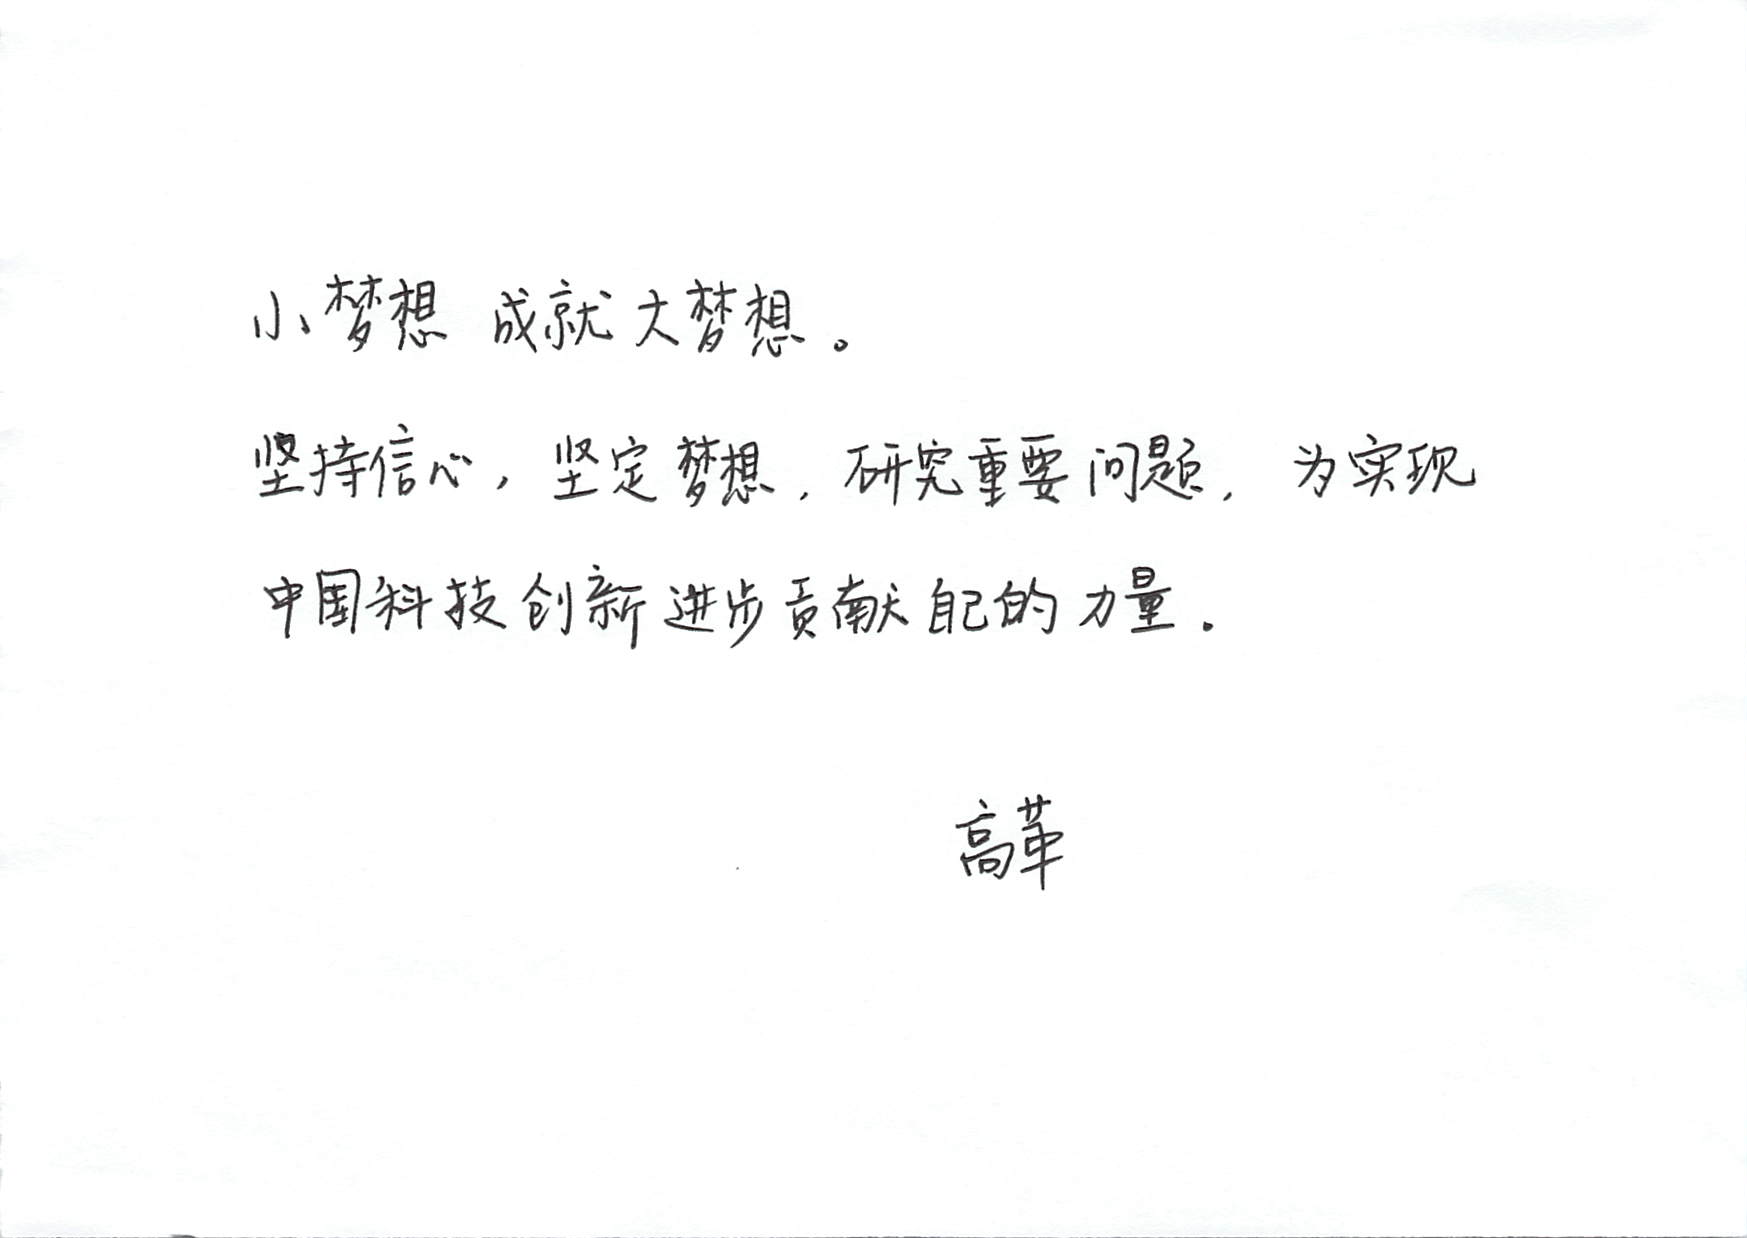 小梦想 成就大梦想。
坚持信心，坚定梦想，研究重要问题，为实现
中国科技创新进步贡献自己的力量。
高革